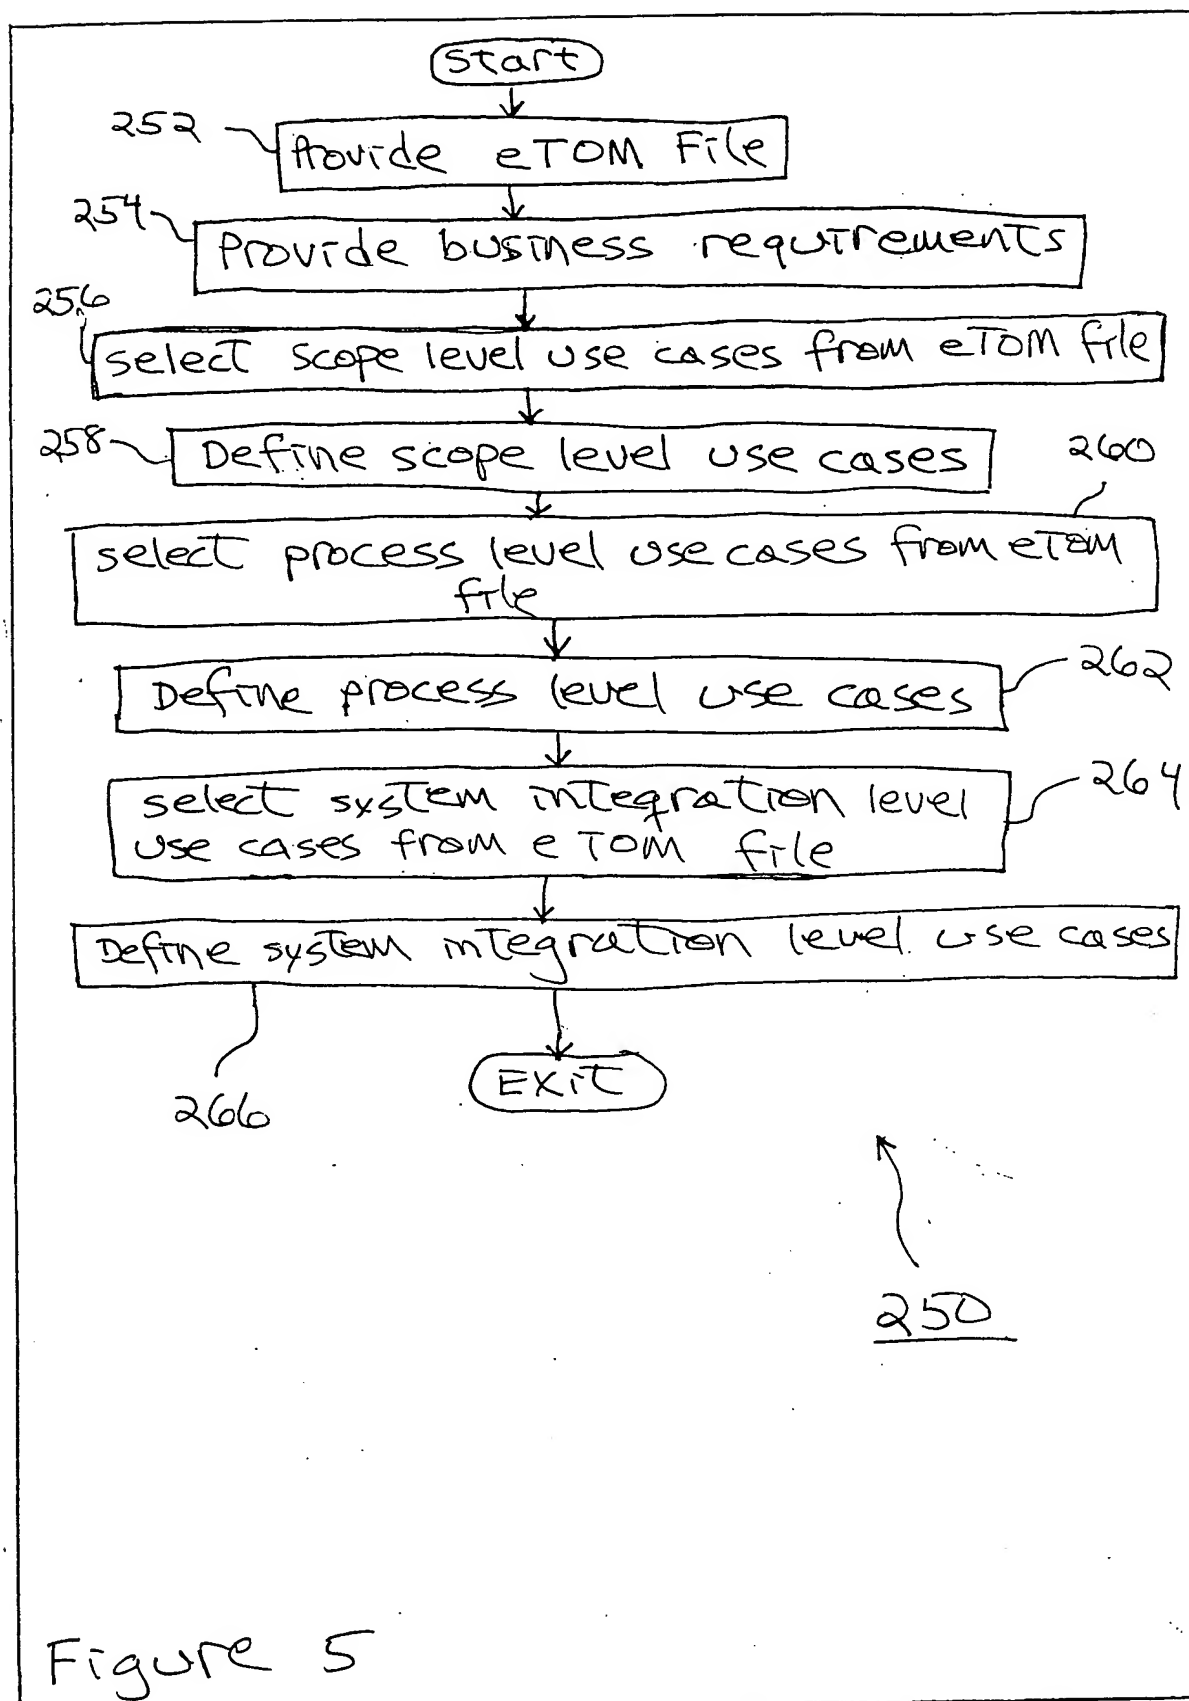 Start
252
Provide eTOM File
254
Provide business requirements
256
select scope level use cases from eTOM file
258
Define scope level use cases
260
select process level use cases from eTOM
file
Define process level use cases
262
select system integration level
264
use cases from eTOM file
Define system integration level use cases
266
Exit
250
Figure 5